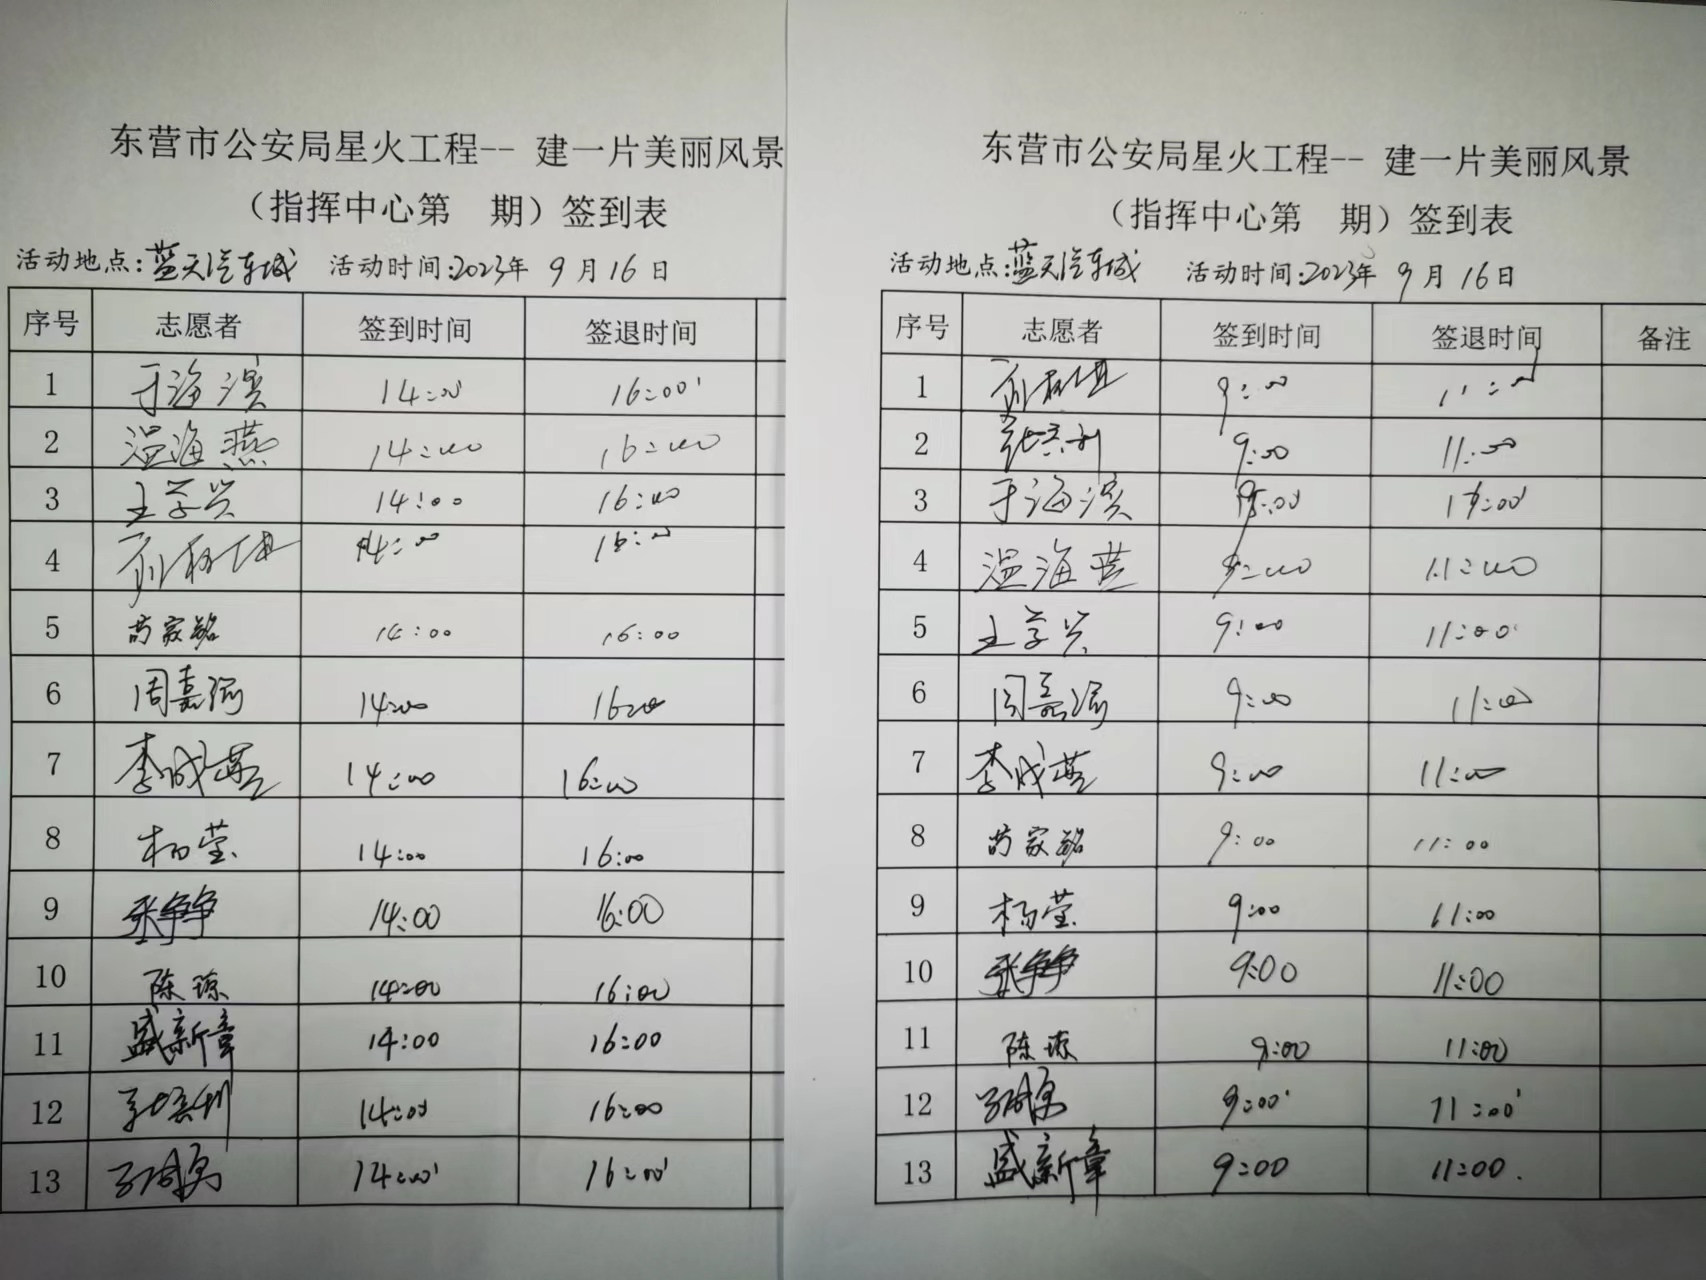 东营市公安局星火工程-- 建一片美丽风景
（指挥中心第 期）签到表
活动地点:蓝天汽车城 活动时间:2023年 9月16日
序号 志愿者 签到时间 签退时间
1 于海滨 14:00' 16:00'
2 温海燕 14:00 16:00
3 王学兴 14:00 16:00
4 14:00 16:00
5 苗家铭 14:00 16:00
6 周嘉瑶 14:00 16:00
7 李成燕 14:00 16:00
8 杨莹 14:00 16:00
9 张争争 14:00 16:00
10 陈琼 14:00 16:00
11 盛新章 14:00 16:00
12 张秀利 14:00 16:00
13 14:00' 16:00'
东营市公安局星火工程-- 建一片美丽风景
（指挥中心第 期）签到表
活动地点:蓝天汽车城 活动时间:2023年 9月16日
序号 志愿者 签到时间 签退时间 备注
1 9:00 11:00
2 张秀利 9:00 11:00
3 于海滨 9:00 11:00'
4 温海燕 9:00 11:00
5 王学兴 9:00 11:00
6 周嘉瑶 9:00 11:00
7 李成燕 9:00 11:00
8 苗家铭 9:00 11:00
9 杨莹 9:00 11:00
10 张争争 9:00 11:00
11 陈琼 9:00 11:00
12 9:00' 11:00'
13 盛新章 9:00 11:00.